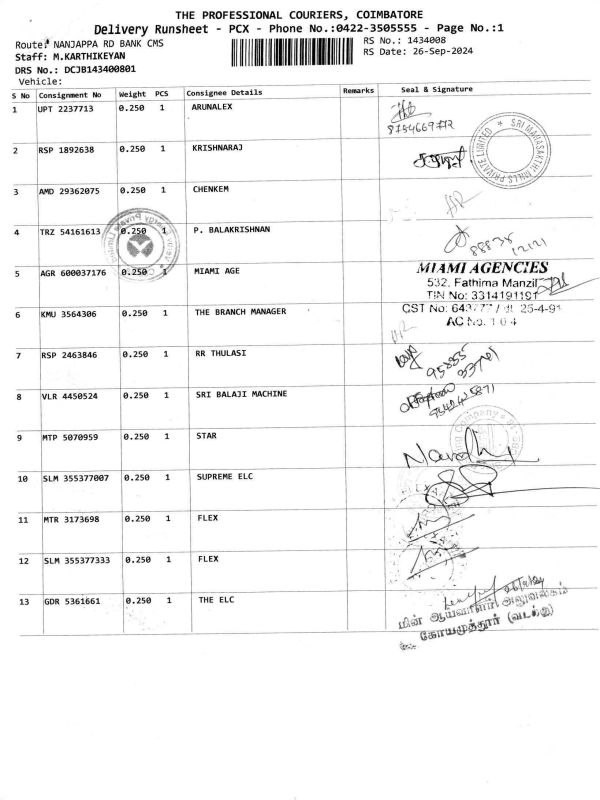 THE PROFESSIONAL COURIERS, COIMBATORE
Delivery Runsheet - PCX - Phone No.:0422-3505555 - Page No.:1
Route: NANJAPPA RD BANK CMS RS No.: 1434008
Staff: M.KARTHIKEYAN RS Date: 26-Sep-2024
DRS No.: DCJB143400801
Vehicle:
S No Consignment No Weight PCS Consignee Details Remarks Seal & Signature
1 UPT 2237713 0.250 1 ARUNALEX
SRI MAHASAKTHI MILLS PRIVATE LIMITED
2 RSP 1892638 0.250 1 KRISHNARAJ
3 AMD 29362075 0.250 1 CHENKEM
4 TRZ 54161613 0.250 1 P. BALAKRISHNAN
88838
12121
5 AGR 600037176 0.250 1 MIAMI AGE
MIAMI AGENCIES
532, Fathima Manzil
TIN No: 3314191191
6 KMU 3564306 0.250 1 THE BRANCH MANAGER
CST No:
AC No. 104
7 RSP 2463846 0.250 1 RR THULASI
8 VLR 4450524 0.250 1 SRI BALAJI MACHINE
9 MTP 5070959 0.250 1 STAR
10 SLM 355377007 0.250 1 SUPREME ELC
11 MTR 3173698 0.250 1 FLEX
12 SLM 355377333 0.250 1 FLEX
13 GDR 5361661 0.250 1 THE ELC
மின் ஆய்வாளர் அலுவலகம்
கோயமுத்தூர் (வடக்கு)